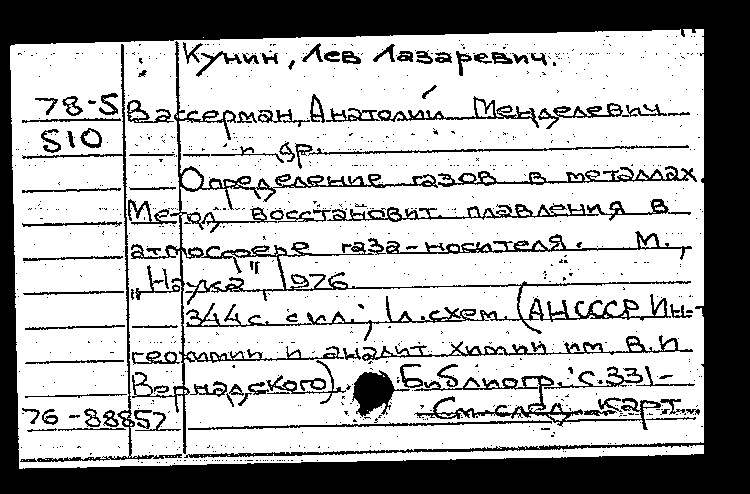 Кунин, Лев Лазаревич.
78-5 Вассерман, Анатолий Менделевич
510 и др.
Определение газов в металлах.
Метод восстановит. плавления в
атмосфере газа-носителя. М.,
„Наука", 1976.
344 с. с ил.; 1 л. схем. (АН СССР. Ин-т
геохимии и аналит. химии им. В.И.
Вернадского). Библиогр.: с. 331-
76-88857 См. след. карт.